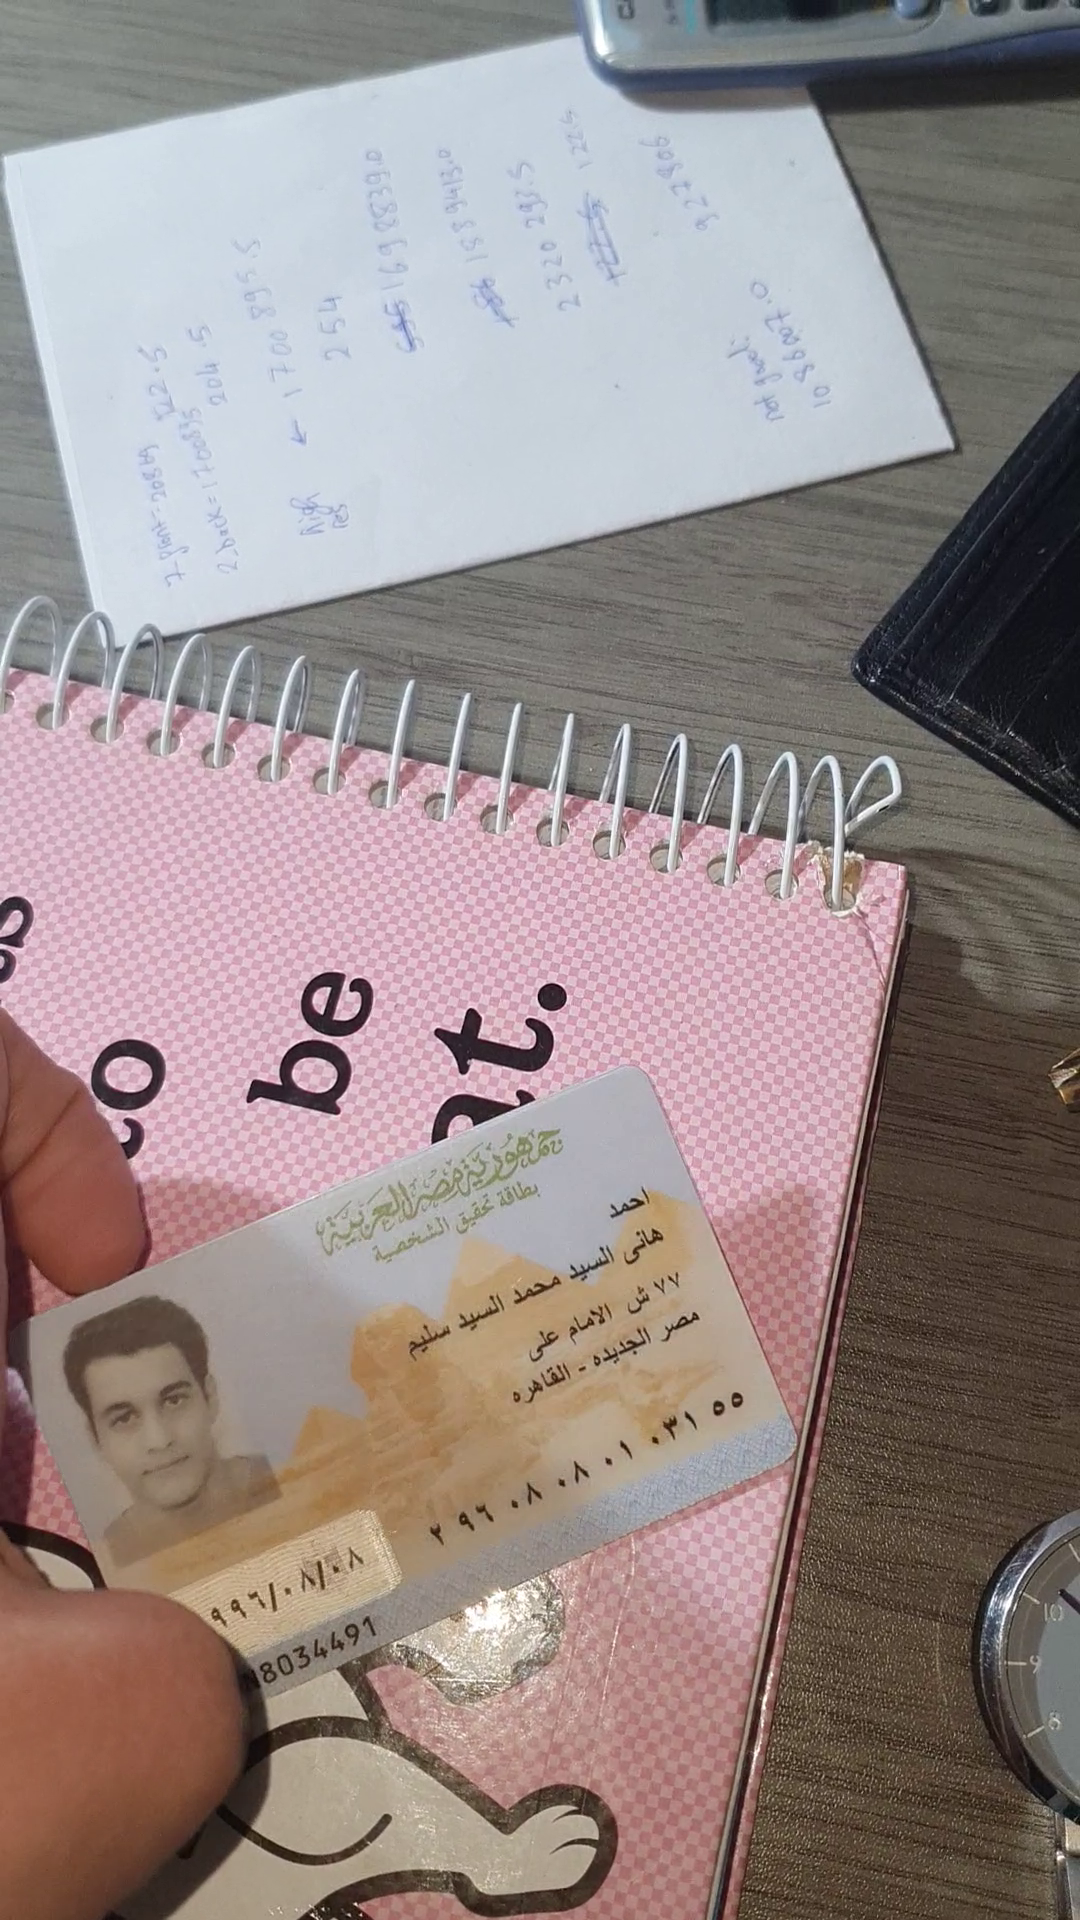 7-front= 20869 522.5
2-back=1700895 204.5
High res ← 1700 895.5
254
169 2839.0
188 9413.0
2320 293.5
122.5
927806
not good:
1086007.0
to
be
at.
جمهورية مصر العربية
بطاقة تحقيق الشخصية
احمد
هانى السيد محمد السيد سليم
٧٧ ش الامام على
مصر الجديده - القاهره
٢ ٩٦ ٠٨ ٠٨ ٠١ ٠٣١ ٥٥
٩٩٦/٠٧/٠٨
8034491
10
9
8